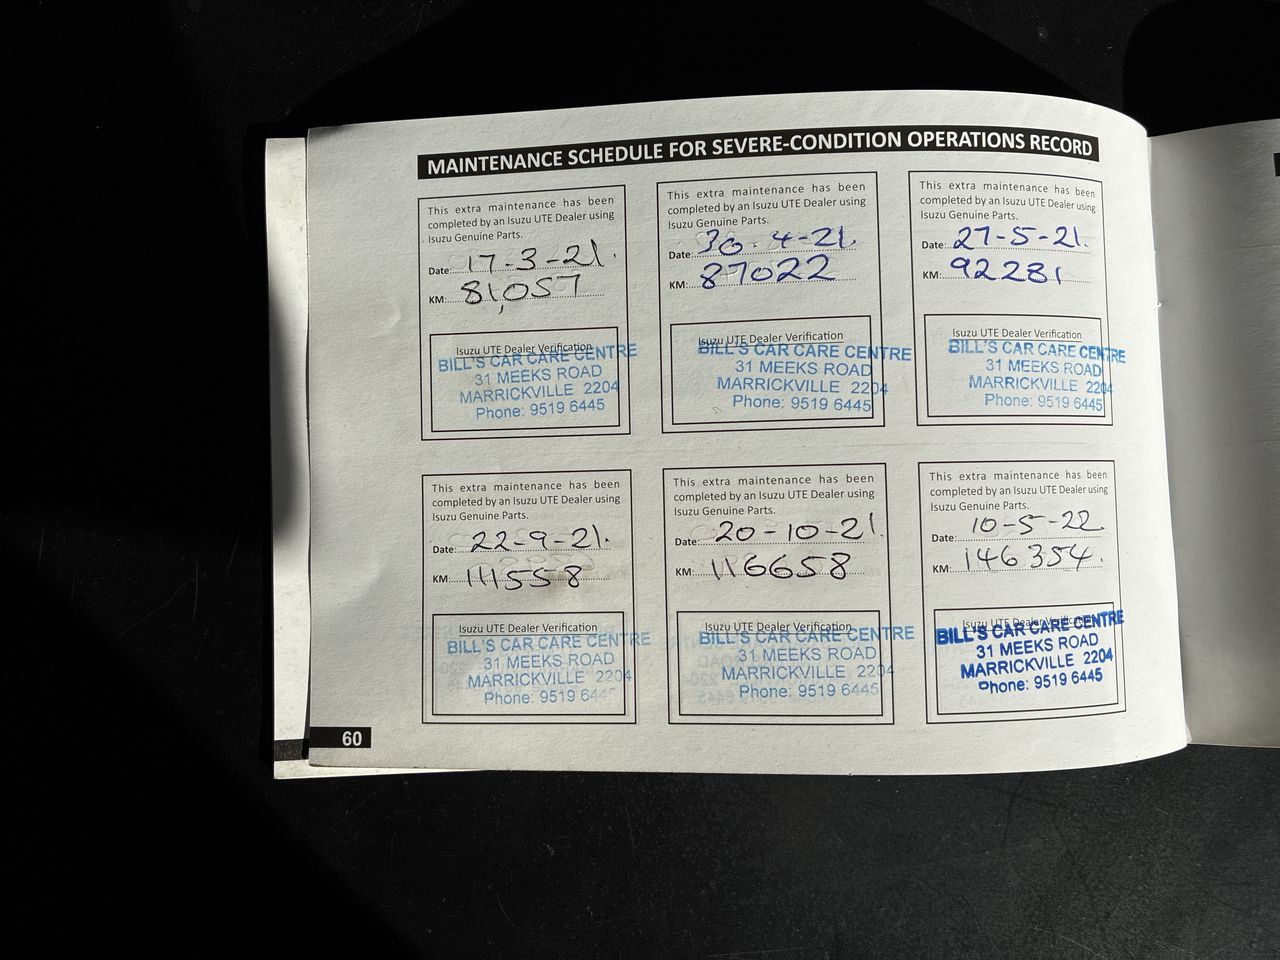 MAINTENANCE SCHEDULE FOR SEVERE-CONDITION OPERATIONS RECORD
This extra maintenance has been
completed by an Isuzu UTE Dealer using
Isuzu Genuine Parts.
Date: 17-3-21.
KM: 81,057
Isuzu UTE Dealer Verification
BILL'S CAR CARE CENTRE
31 MEEKS ROAD
MARRICKVILLE 2204
Phone: 9519 6445
This extra maintenance has been
completed by an Isuzu UTE Dealer using
Isuzu Genuine Parts.
Date: 30-4-21.
KM: 87022
Isuzu UTE Dealer Verification
BILL'S CAR CARE CENTRE
31 MEEKS ROAD
MARRICKVILLE 2204
Phone: 9519 6445
This extra maintenance has been
completed by an Isuzu UTE Dealer using
Isuzu Genuine Parts.
Date: 27-5-21.
KM: 92281
Isuzu UTE Dealer Verification
BILL'S CAR CARE CENTRE
31 MEEKS ROAD
MARRICKVILLE 2204
Phone: 9519 6445
This extra maintenance has been
completed by an Isuzu UTE Dealer using
Isuzu Genuine Parts.
Date: 22-9-21.
KM: 111558
Isuzu UTE Dealer Verification
BILL'S CAR CARE CENTRE
31 MEEKS ROAD
MARRICKVILLE 2204
Phone: 9519 6445
This extra maintenance has been
completed by an Isuzu UTE Dealer using
Isuzu Genuine Parts.
Date: 20-10-21.
KM: 116658
Isuzu UTE Dealer Verification
BILL'S CAR CARE CENTRE
31 MEEKS ROAD
MARRICKVILLE 2204
Phone: 9519 6445
This extra maintenance has been
completed by an Isuzu UTE Dealer using
Isuzu Genuine Parts.
Date: 10-5-22.
KM: 146354.
Isuzu UTE Dealer Verification
BILL'S CAR CARE CENTRE
31 MEEKS ROAD
MARRICKVILLE 2204
Phone: 9519 6445
60